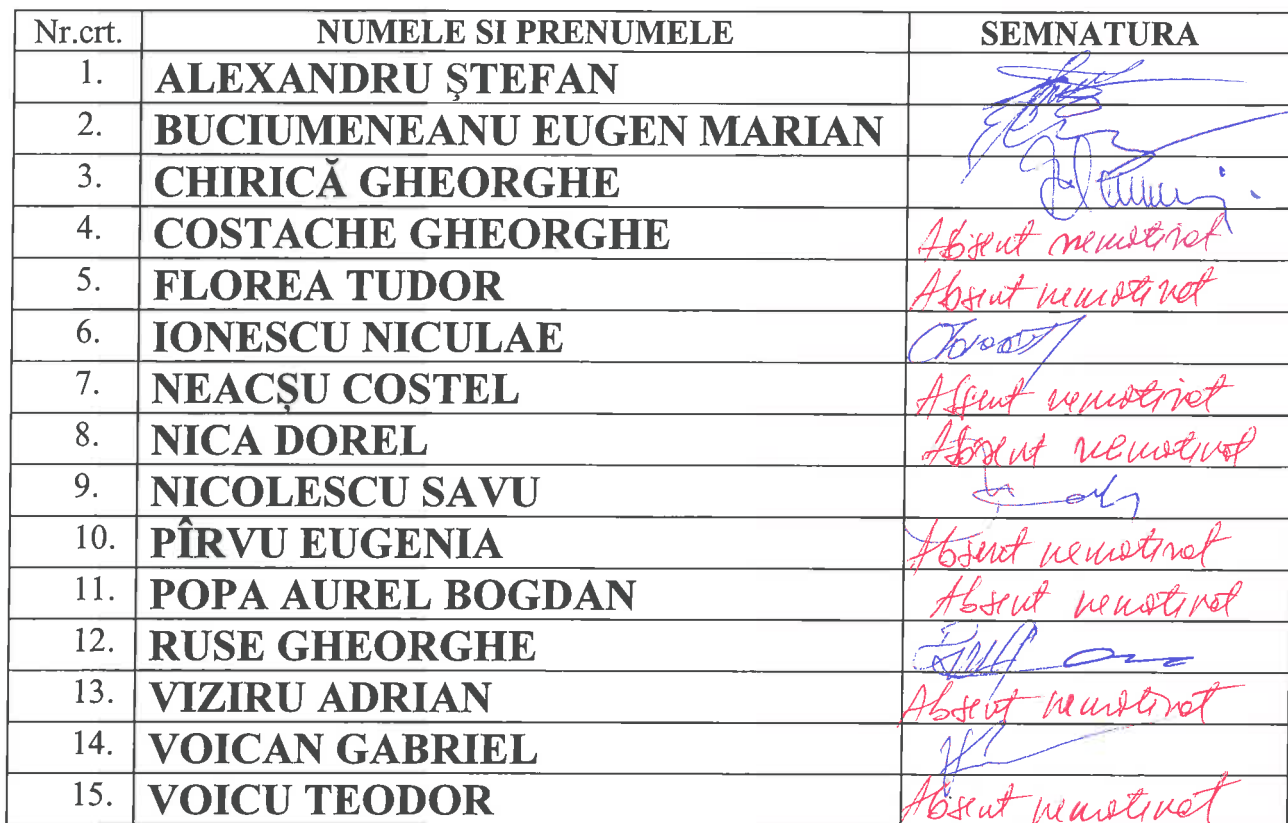 Nr.crt. NUMELE SI PRENUMELE SEMNATURA
1. ALEXANDRU ŞTEFAN
2. BUCIUMENEANU EUGEN MARIAN
3. CHIRICĂ GHEORGHE
4. COSTACHE GHEORGHE Absent nemotivat
5. FLOREA TUDOR Absent nemotivat
6. IONESCU NICULAE
7. NEACŞU COSTEL Absent nemotivat
8. NICA DOREL Absent nemotivat
9. NICOLESCU SAVU
10. PÎRVU EUGENIA Absent nemotivat
11. POPA AUREL BOGDAN Absent nemotivat
12. RUSE GHEORGHE
13. VIZIRU ADRIAN Absent nemotivat
14. VOICAN GABRIEL
15. VOICU TEODOR Absent nemotivat